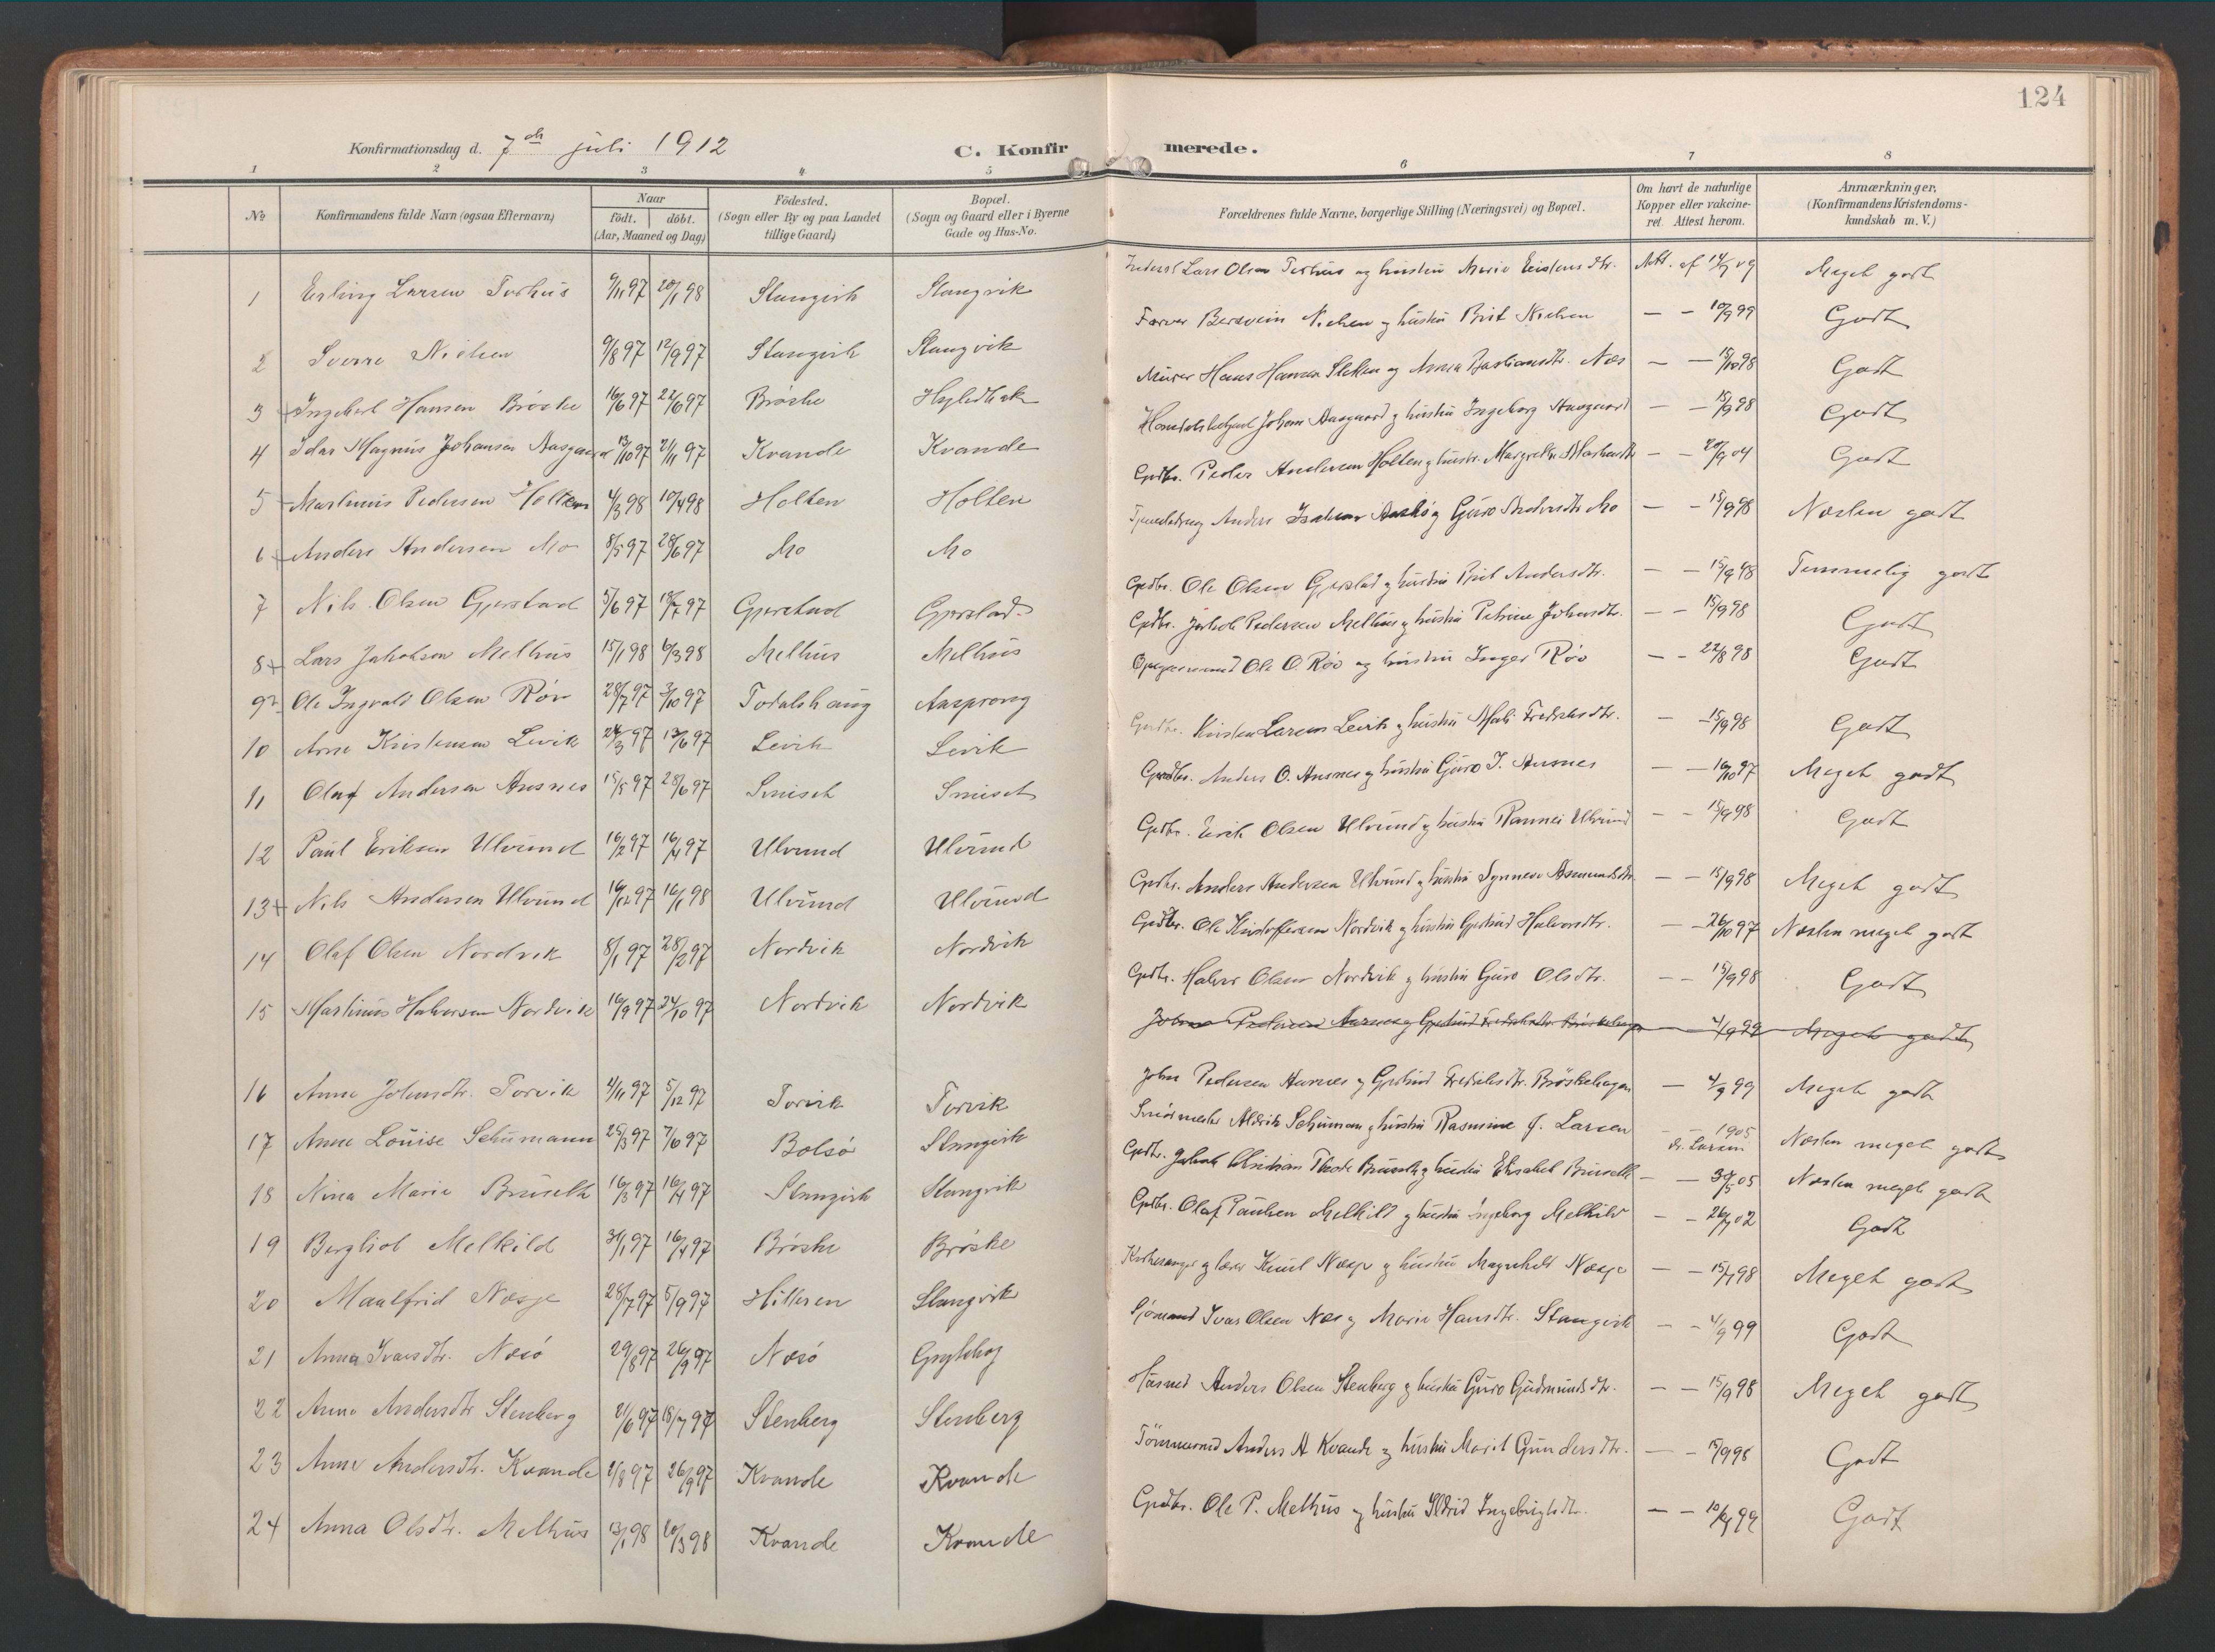 124
Konfirmationsdag d. 7de juli 1912
C. Konfirmerede.
1 2 3 4 5 6 7 8
No
Konfirmandens fulde Navn (ogsaa Efternavn)
Naar
födt. döbt.
(Aar, Maaned og Dag)
Födested.
(Sogn eller By og paa Landet
tillige Gaard)
Bopæl.
(Sogn og Gaard eller i Byerne
Gade og Hus-No.
Forældrenes fulde Navne, borgerlige Stilling (Næringsvei) og Bopæl.
Om havt de naturlige
Kopper eller vakcine-
ret. Attest herom.
Anmærkninger.
(Konfirmandens Kristendoms-
kundskab m. V.)
1 Erling Larsen Torhus 9/11 97 20/1 98 Stangvik Stangvik Lars Olsen Torhus og hustru Marie Meget godt
2 Sverre Nielsen 9/8 97 12/9 97 Stangvik Stangvik Farver Nielsen og hustru Brit Nielsen — — 10/9 99 Godt
3 Ingebret Hansen Brøske 16/6 97 27/6 97 Brøske Murer Hans Hansen og Anna Bastiansdtr. Næs — — 15/10 98 Godt
4 Idar Magnus Johansen Aasgaard 13/10 97 21/11 97 Kvande Kvande Johan Aasgaard og hustru Ingeborg Aasgaard — — 15/9 98 Godt
5 Martinus Pedersen Holten 4/3 98 10/4 98 Holten Holten Grdbr. Peder Andersen Holten og hustr. Margrethe — — 20/9 04 Godt
6 Anders Andersen Mo 8/5 97 28/6 97 Mo Mo Anders og Guro Andersdtr. Mo — — 15/9 98 Næsten godt
7 Nils Olsen Gjerstad 5/6 97 18/7 97 Gjerstad Gjerstad Grdbr. Ole Olsen Gjerstad og hustru Brit Andersdtr. — — 15/9 98 Temmelig godt
8 Lars Jakobsen Melhus 15/1 98 6/3 98 Melhus Melhus Grdbr. Jakob Pedersen Melhus og hustru Petrine Johansdtr. — — 15/9 98 Godt
9 Ole Ingvald Olsen Røv 28/7 97 3/10 97 Todalshaug Ole O. Røv og hustru Inger Røv — — 22/8 98 Godt
10 Arne Kristensen Levik 24/3 97 13/6 97 Levik Levik Grdbr. Kristen Larsen Levik og hustru Mali Fredriksdtr. — — 15/9 98 Godt
11 Olaf Andersen Husnes 15/5 97 28/6 97 Smiseth Smiseth Gaardbr. Anders O. Husnes og hustru Guro I. Husnes — — 16/10 97 Meget godt
12 Paul Eriksen Ulvund 16/2 97 16/4 97 Ulvund Ulvund Grdbr. Erik Olsen Ulvund og hustru Rannei Ulvund — — 15/9 98 Godt
13 Nils Andersen Ulvund 16/12 97 16/1 98 Ulvund Ulvund Grdbr. Anders Andersen Ulvund og hustru Synneve Asmundsdtr. — — 15/9 98 Meget godt
14 Olaf Olsen Nordvik 8/1 97 28/2 97 Nordvik Nordvik Grdbr. Ole Kristoffersen Nordvik og hustru Gjertrud Halvorsdtr. — — 26/10 97 Næsten meget godt
15 Martinus Halvorsen Nordvik 16/9 97 24/10 97 Nordvik Nordvik Grdbr. Halvor Olsen Nordvik og hustru Guro Olsdtr. — — 15/9 98 Godt
John Pedersen Aarnes og Gjertrud Fredriksdtr. Brøskehagen — — 4/9 99 Meget godt
16 Anne Johnsdtr. Torvik 4/11 97 5/12 97 Torvik Torvik John Pedersen Aarnes og Gjertrud Fredriksdtr. Brøskehagen — 4/9 99 Meget godt
17 Anne Louise Schumann 25/3 97 7/6 97 Bolsø Stangvik Schuman og hustru Rasmine J. Larsen — — 1905 dr. Larsen Næsten meget godt
18 Nina Marie Bruseth 16/3 97 16/4 97 Stangvik Stangvik Grdbr. Jakob Christian Thode og hustru Elisabet — — 30/5 05 Næsten meget godt
19 Bergliot Melkild 31/1 97 16/4 97 Brøske Brøske Grdbr. Olaf Paulsen Melkild og hustru Ingeborg Melkild — — 26/9 02 Godt
20 Maalfrid Næsje 28/7 97 5/9 97 Halleren Stangvik Kirkesanger og lærer Knut Næsje og hustru Magnhild Næsje — — 15/9 98 Meget godt
21 Anna Ivarsdtr. Næsø 29/8 97 26/9 97 Næsø Sjømand Ivar Olsen Næs og Marie Hansdtr. Stangvik — — 4/9 99 Godt
22 Anne Andersdtr Stenberg 21/6 97 18/7 97 Stenberg Stenberg Husmd Anders Olsen Stenberg og hustru Guro Gudmundsdtr. — — 15/9 98 Meget godt
23 Anne Andersdtr. Kvande 2/8 97 26/9 97 Kvande Kvande Tømmermd Anders A Kvande og hustru Marit Gundersdtr. — — 15/9 98 Godt
24 Anna Olsdtr. Melhus 13/1 98 20/3 98 Kvande Kvande Grdbr. Ole P. Melhus og hustru Ildrid Ingebrigtsdtr. — — 10/9 99 Godt